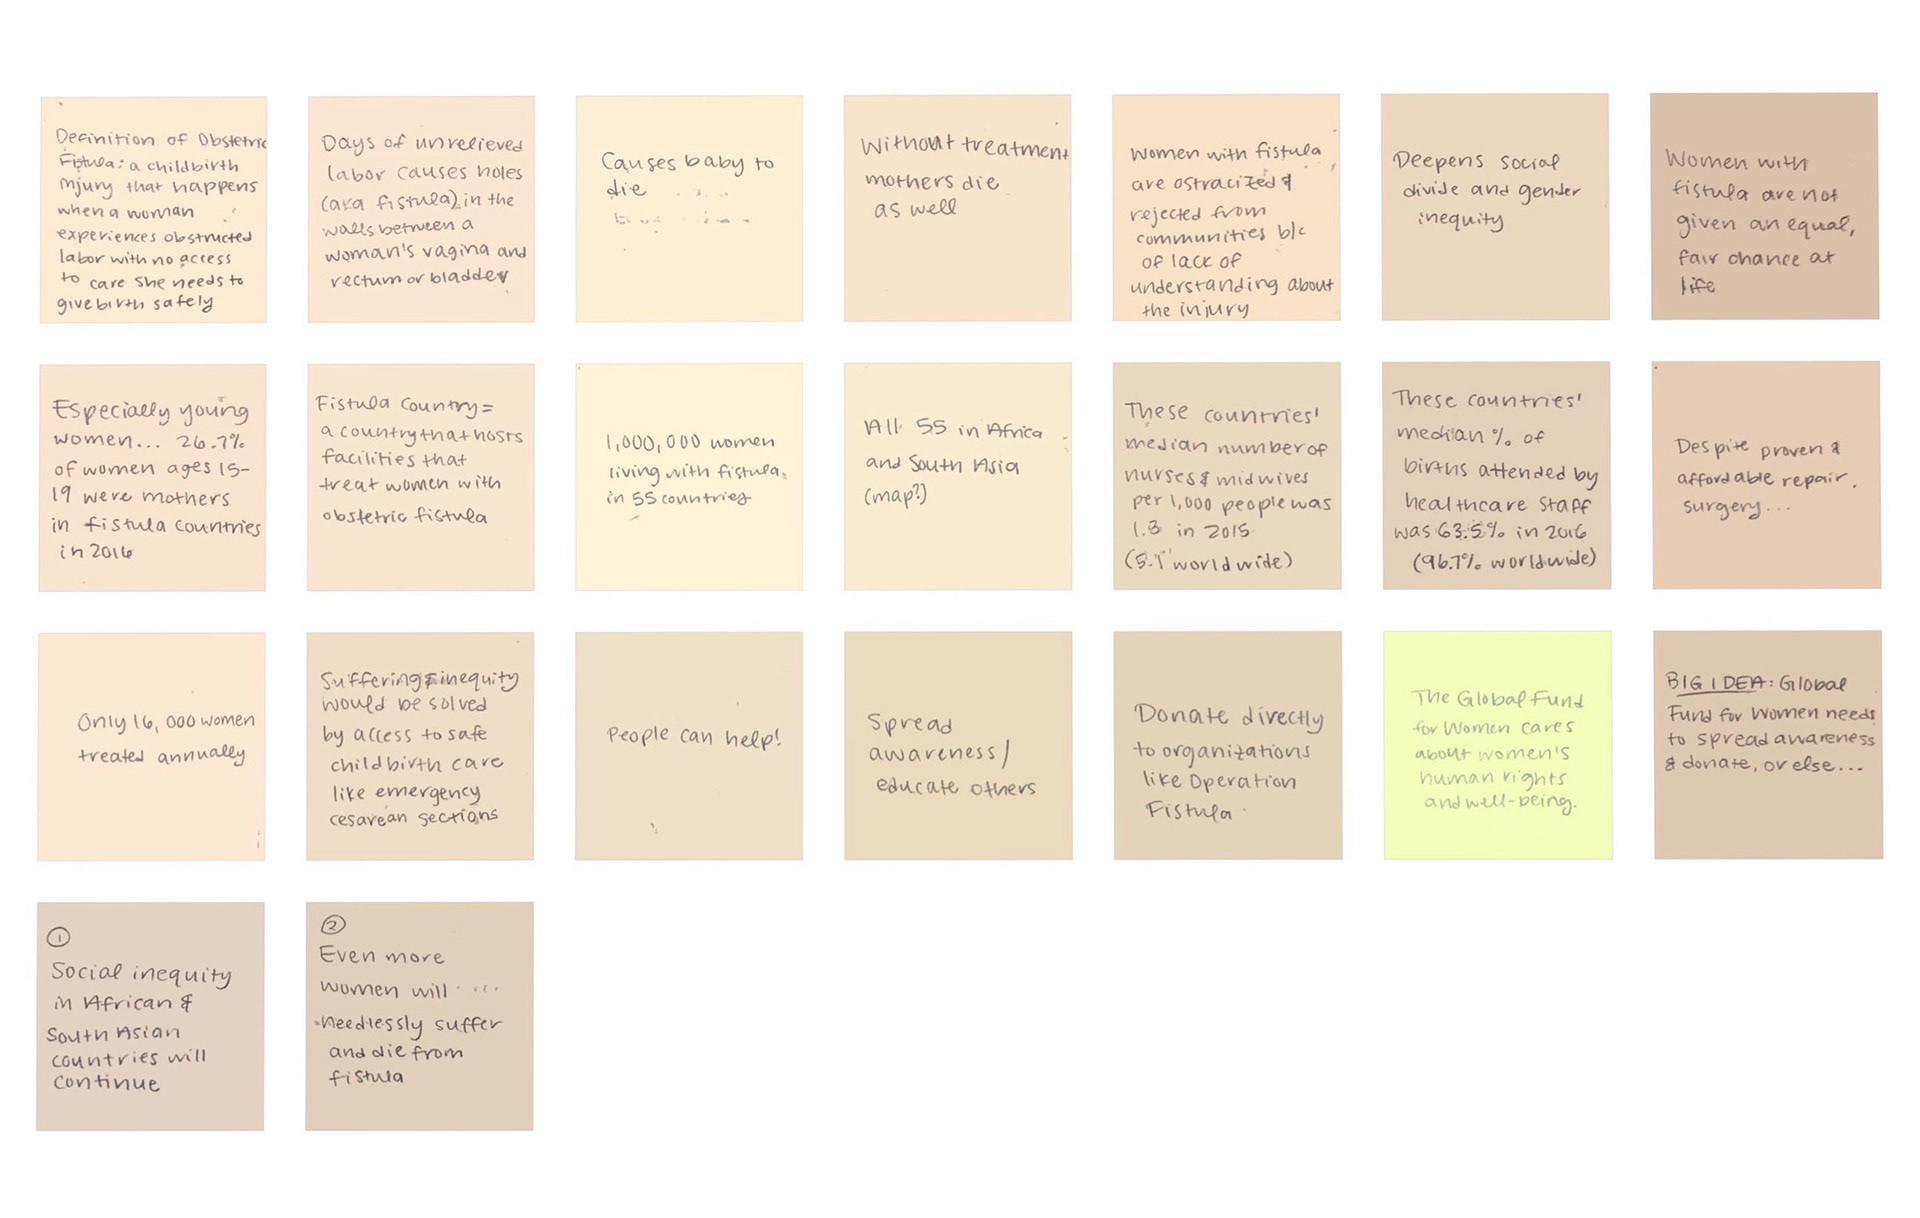 Definition of Obstetric
Fistula: a childbirth
injury that happens
when a woman
experiences obstructed
labor with no access
to care she needs to
give birth safely
Days of unrelieved
labor causes holes
(aka fistula) in the
walls between a
woman's vagina and
rectum or bladder
Causes baby to
die
Without treatment
mothers die
as well
Women with fistula
are ostracized &
rejected from
communities b/c
of lack of
understanding about
the injury
Deepens social
divide and gender
inequity
Women with
fistula are not
given an equal,
fair chance at
life
Especially young
women... 26.7%
of women ages 15-
19 were mothers
in fistula countries
in 2016
Fistula Country =
a country that hosts
facilities that
treat women with
obstetric fistula
1,000,000 women
living with fistula
in 55 countries
All 55 in Africa
and South Asia
(map?)
These countries'
median number of
nurses & midwives
per 1,000 people was
in 2015
(5.1 worldwide)
These countries'
median % of
births attended by
healthcare staff
was 63.5% in 2016
(96.7% worldwide)
Despite proven &
affordable repair
surgery...
Only 16,000 women
treated annually
Suffering & inequity
would be solved
by access to safe
childbirth care
like emergency
cesarean sections
People can help!
Spread
awareness/
educate others
Donate directly
to organizations
like Operation
Fistula
The Global Fund
for Women cares
about women's
human rights
and well-being.
BIG IDEA: Global
Fund for Women needs
to spread awareness
& donate, or else...
1
Social inequity
in African &
South Asian
countries will
continue
2
Even more
women will
needlessly suffer
and die from
fistula